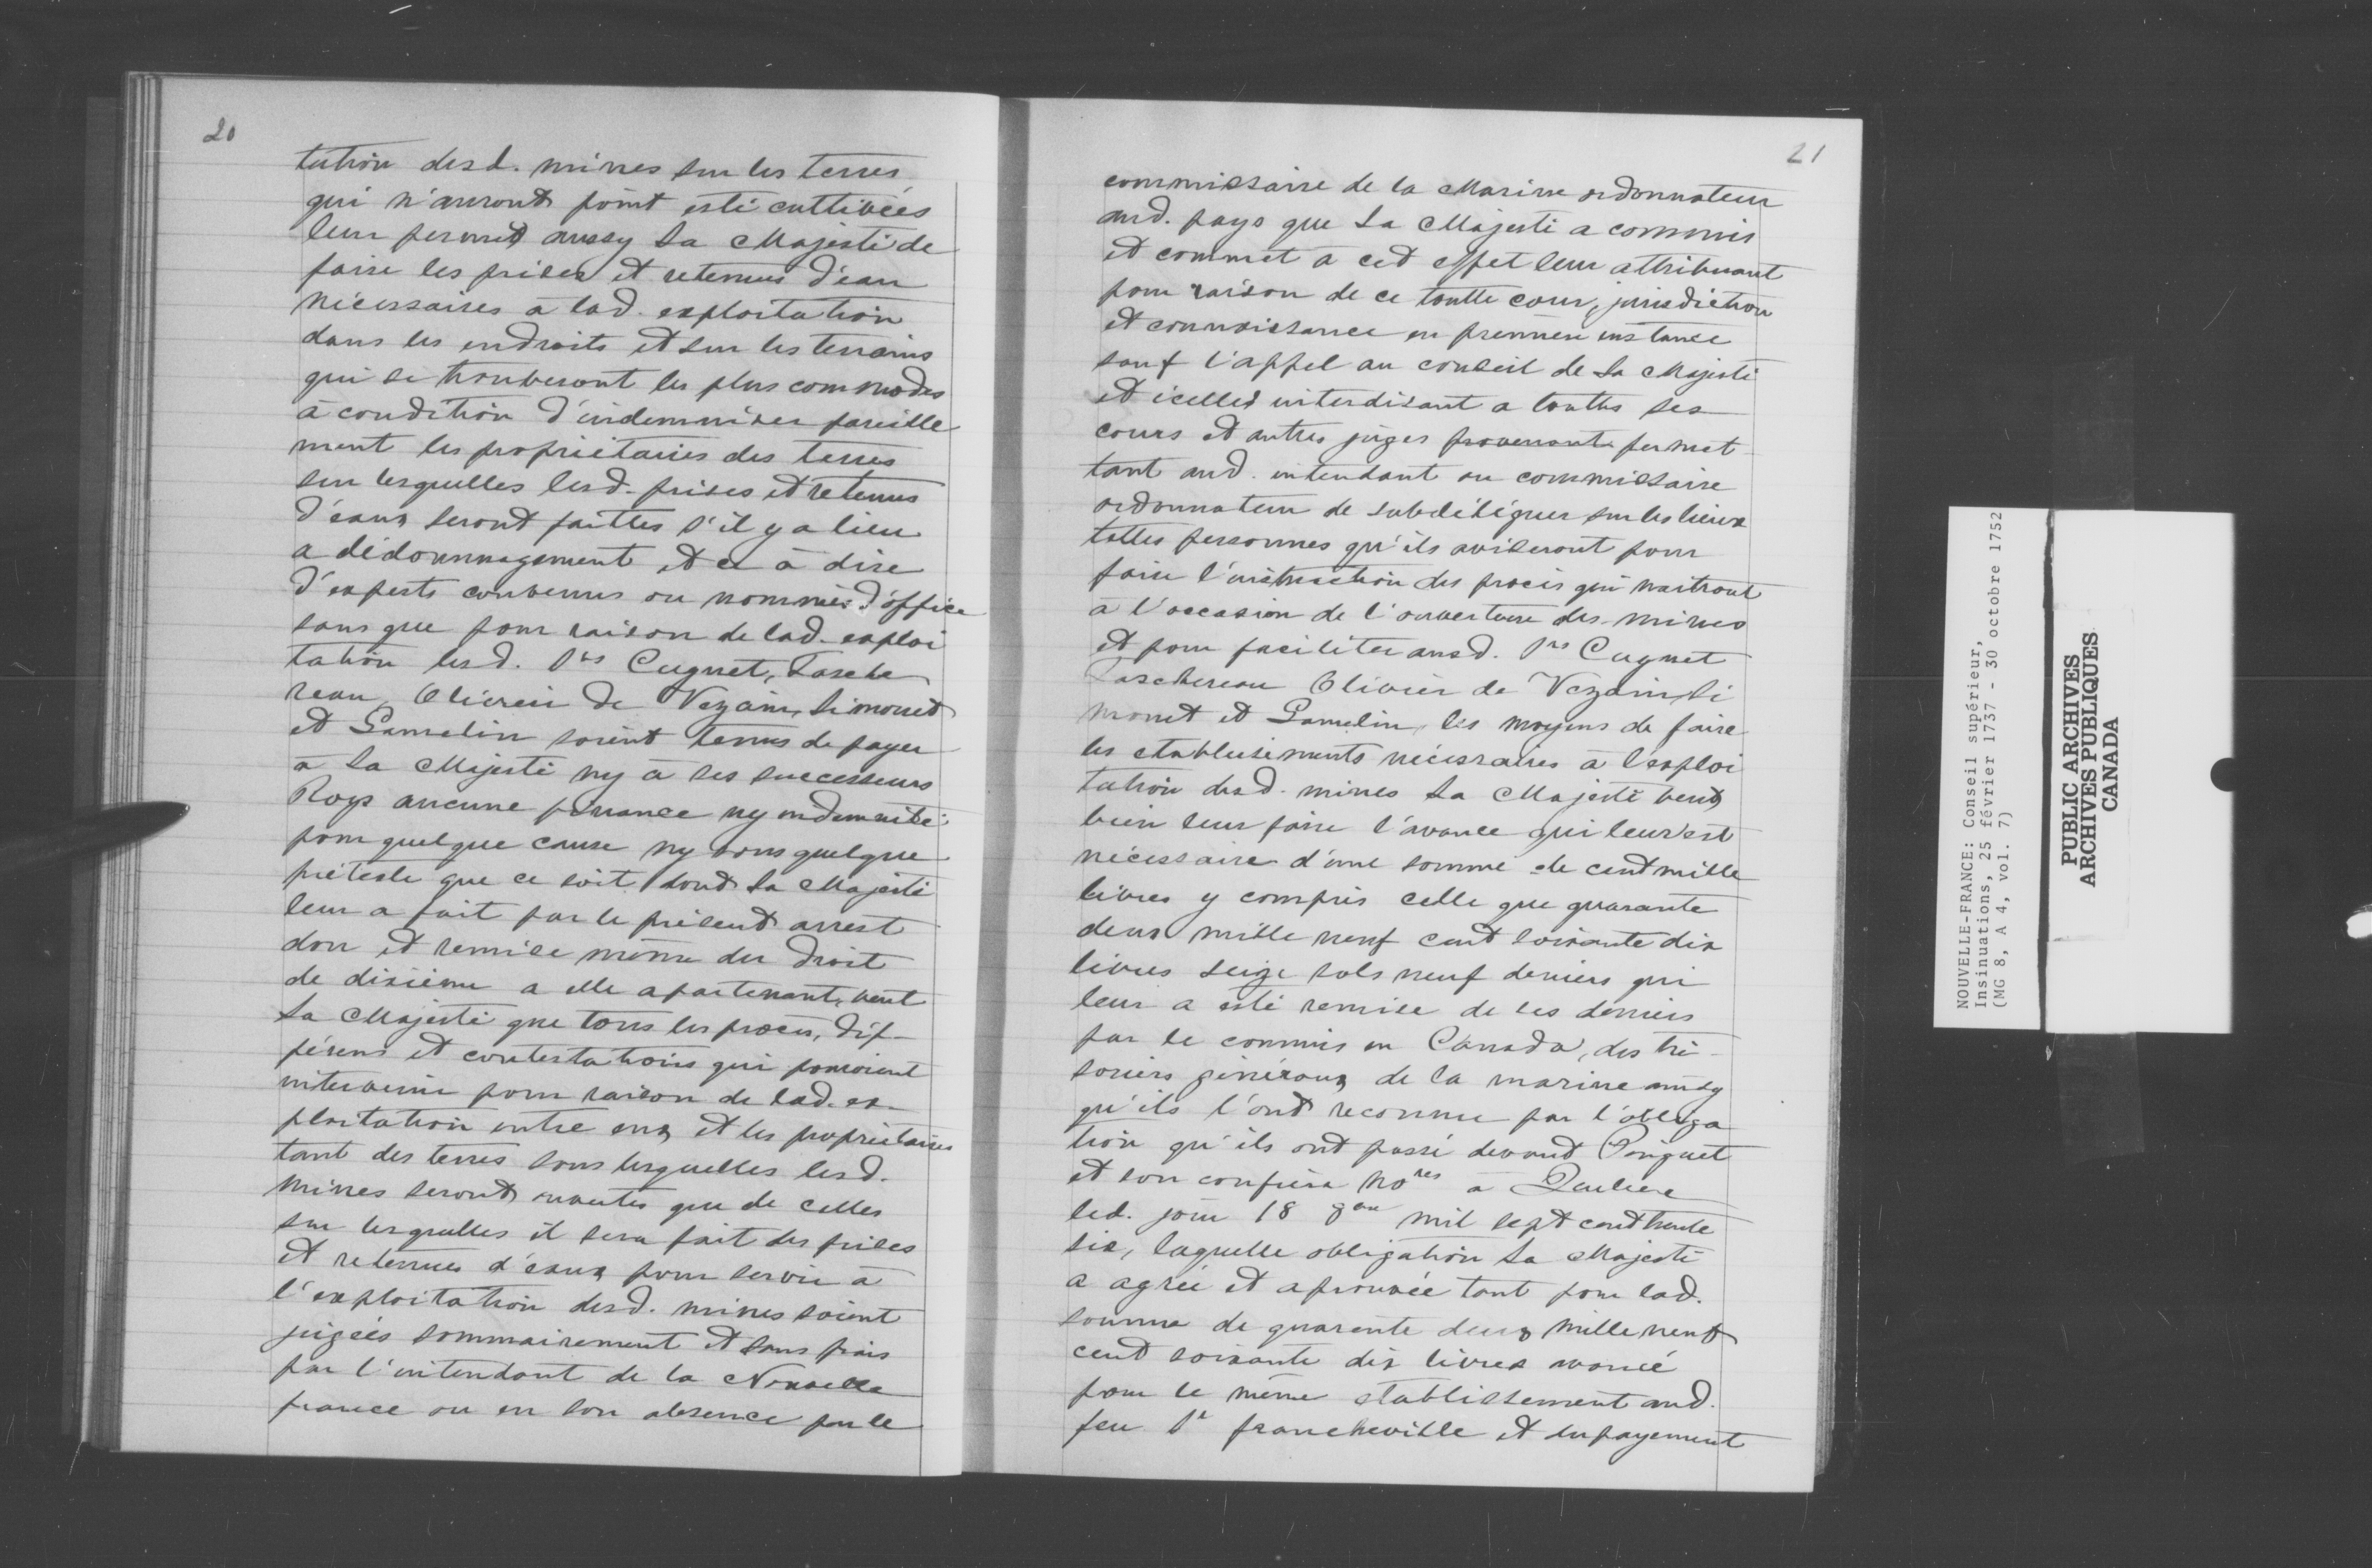 20
tation desd. mines sur les terres
qui n'auront point esté cultivées
leur permet aussy Sa Majesté de
faire les prises et retenues d'eau
nécessaires à lad. exploitation
dans les endroits et sur les terrains
qui se trouveront les plus commodes
à condition d'indemniser pareille
ment les propriétaires des terres
sur lesquelles lesd. prises et retenues
d'eaux seront faittes s'il y a lieu
a dédommagement et ce à dire
d'experts convenus ou nommés d'office
sans que pour raison de lad. exploi
tation lesd. Srs Cugnet, Tasche
reau, Olivier de Vezain, Simonet
et Gamelin soient tenus de payer
a Sa Majesté ny à ses successeurs
Roys aucune ny indemnité
pour quelque cause ny sous quelque
prétexte que ce soit dont Sa Majesté
leur a fait par le présent arrest
don et remise même du droit
de dixième a elle apartenant, veut
Sa Majesté que tous les procès, dif-
férens et contestations qui pouroient
intervenir pour raison de lad. ex-
ploitation entre eux et les propriétaires
tant des terres sous lesquelles lesd.
mines seront ouvertes que de celles
sur lesquelles il sera fait des prises
et retenues d'eaux pour servir à
l'exploitation desd. mines soient
jugées sommairement et sans frais
par l'intendant de la Nouvelle
france ou en son absence par le
21
commissaire de la Marine ordonnateur
aud. pays que Sa Majesté a commis
et commet à cet effet leur attribuant
pour raison de ce toutte cour, jurisdiction
et connoissance en premiere instance
sauf l'appel au conseil de Sa Majesté
et icelles interdisant a touttes ses
cours et autres juges permet
tant aud. intendant ou commissaire
ordonnateur de subdéléguer sur les lieux
tottes personnes qu'ils aviseront pour
faire l'instruction des procès qui naitront
à l'occasion de l'ouverture des mines
et pour faciliter ausd. Srs Cugnet
Taschereau Olivier de Vezain, Si
monet et Gamelin, les moyens de faire
les etablissements nécessaires à l'exploi
tation desd. mines Sa Majesté veut
bien leur faire l'avance qui leur est
nécessaire d'une somme de cent mille
livres y compris celle que quarante
deux mille neuf cent soixante dix
livres seize sols neuf deniers qui
leur a esté remise de ses deniers
par le commis en Canada, des tré-
soriers généraux de la marine ainsy
qu'ils l'ont reconnu par l'obliga
tion qu'ils ont passé devant Pinguet
et son confrère nores à Quebec
led. jour 18 8bre mil sept cent trente
six, laquelle obligation Sa Majesté
a agréé et aprouvée tant pour lad.
somme de quarente deux mille neuf
cent soixante dix livres avancé
pour le même établissement aud.
feu Sr francheville et du payement
NOUVELLE-FRANCE: Conseil supérieur,
Insinuations, 25 février 1737 - 30 octobre 1752
(MG 8, A 4, vol. 7)
PUBLIC ARCHIVES
ARCHIVES PUBLIQUES
CANADA